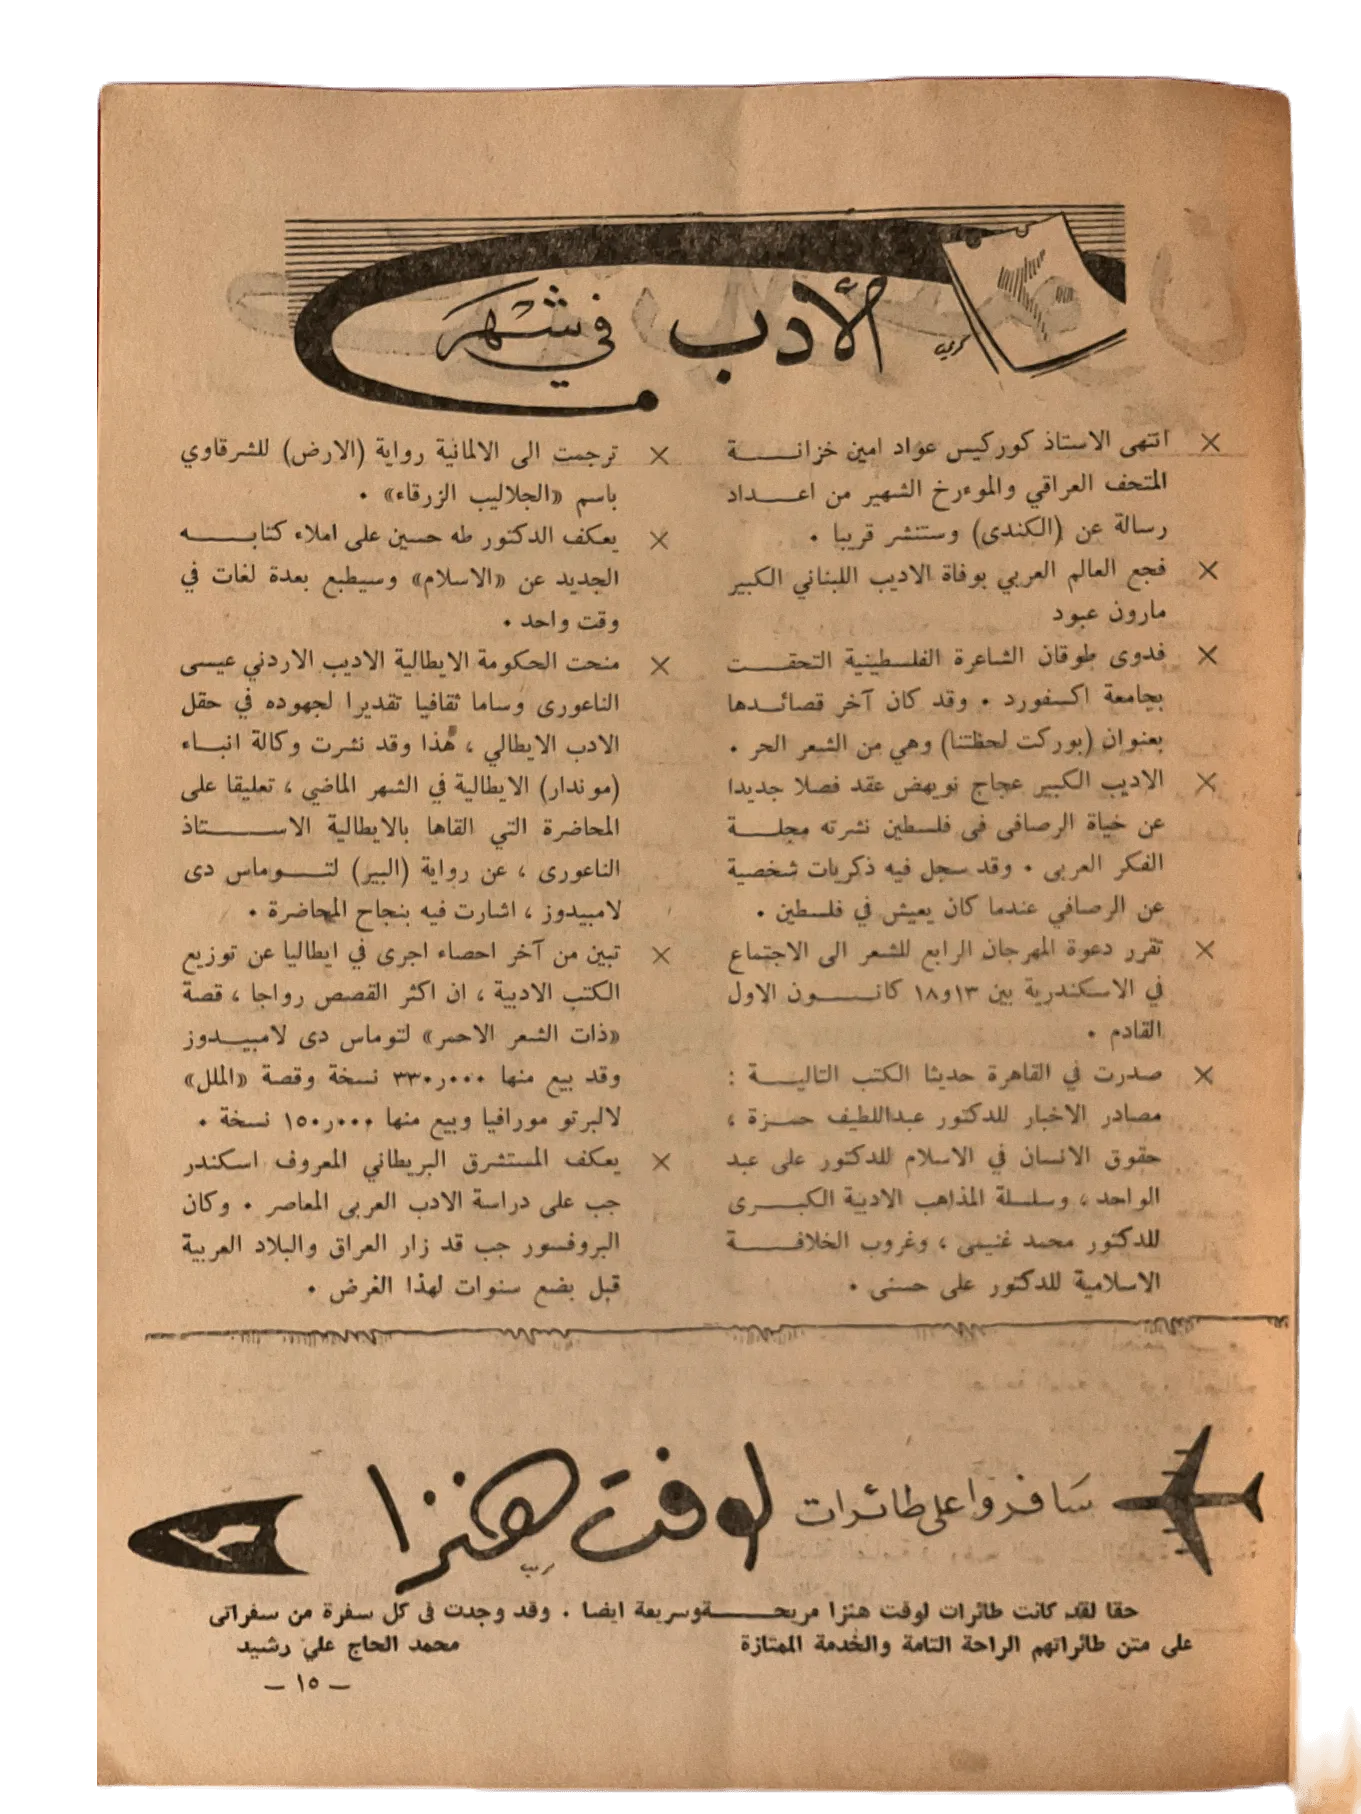 الأدب في شهر
× انتهى الاستاذ كوركيس عواد امين خزانة
المتحف العراقي والموءرخ الشهير من اعداد
رسالة عن (الكندى) وستنشر قريبا ٠
× فجع العالم العربي بوفاة الاديب اللبناني الكبير
مارون عبود
× فدوى طوقان الشاعرة الفلسطينية التحقت
بجامعة اكسفورد ٠ وقد كان آخر قصائدها
بعنوان (بوركت لحظتنا) وهي من الشعر الحر ٠
× الاديب الكبير عجاج نويهض عقد فصلا جديدا
عن حياة الرصافى فى فلسطين نشرته مجلة
الفكر العربى ٠ وقد سجل فيه ذكريات شخصية
عن الرصافي عندما كان يعيش في فلسطين ٠
× تقرر دعوة المهرجان الرابع للشعر الى الاجتماع
في الاسكندرية بين ١٣و١٨ كانون الاول
القادم ٠
× صدرت في القاهرة حديثا الكتب التالية :
مصادر الاخبار للدكتور عبداللطيف حمزة ،
حقوق الانسان في الاسلام للدكتور على عبد
الواحد ، وسلسلة المذاهب الادبية الكبرى
للدكتور محمد غنيمى ، وغروب الخلافة
الاسلامية للدكتور على حسنى ٠
× ترجمت الى الالمانية رواية (الارض) للشرقاوي
باسم «الجلاليب الزرقاء» ٠
× يعكف الدكتور طه حسين على املاء كتابه
الجديد عن «الاسلام» وسيطبع بعدة لغات في
وقت واحد ٠
× منحت الحكومة الايطالية الاديب الاردني عيسى
الناعورى وساما ثقافيا تقديرا لجهوده في حقل
الادب الايطالي ، هذا وقد نشرت وكالة انباء
(موندار) الايطالية في الشهر الماضي ، تعليقا على
المحاضرة التي القاها بالايطالية الاستاذ
الناعورى ، عن رواية (البير) لتوماس دى
لامبيدوز ، اشارت فيه بنجاح المحاضرة ٠
× تبين من آخر احصاء اجرى في ايطاليا عن توزيع
الكتب الادبية ، ان اكثر القصص رواجا ، قصة
«ذات الشعر الاحمر» لتوماس دى لامبيدوز
وقد بيع منها ٣٣٠ر٠٠٠ نسخة وقصة «الملل»
لالبرتو مورافيا وبيع منها ١٥٠ر٠٠٠ نسخة ٠
× يعكف المستشرق البريطاني المعروف اسكندر
جب على دراسة الادب العربى المعاصر ٠ وكان
البروفسور جب قد زار العراق والبلاد العربية
قبل بضع سنوات لهذا الغرض ٠
سافروا على طائرات لوفت هنزا
حقا لقد كانت طائرات لوفت هنزا مريحة وسريعة ايضا ٠ وقد وجدت فى كل سفرة من سفراتى
على متن طائراتهم الراحة التامة والخدمة الممتازة محمد الحاج علي رشيد
— ١٥ —